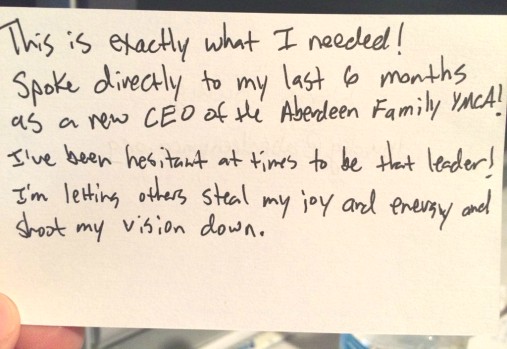 This is exactly what I needed!
Spoke directly to my last 6 months
as a new CEO of the Aberdeen Family YMCA!
I've been hesitant at times to be that leader!
I'm letting others steal my joy and energy and
shoot my vision down.